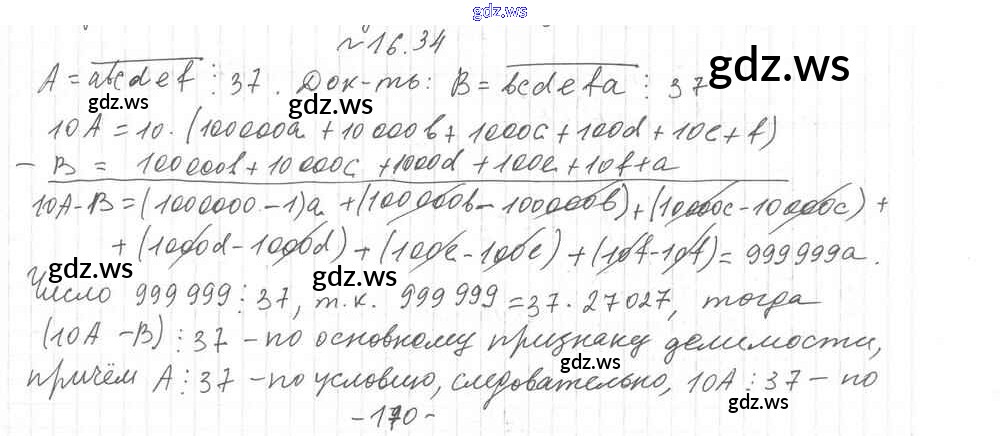 gdz.ws
№16.34
A = abcdef ⋮ 37. Док-ть: B = bcdefa ⋮ 37
gdz.ws
gdz.ws
gdz.ws
10A = 10·(100000a + 10000b + 1000c + 100d + 10e + f)
− B = 100000b + 10000c + 1000d + 100e + 10f + a
gdz.ws
gdz.ws
10A - B = (1000000 - 1)a + (100000b - 100000b) + (10000c - 10000c) +
+ (1000d - 1000d) + (100e - 100e) + (10f - 10f) = 999999a.
gdz.ws
gdz.ws
Число 999 999 ⋮ 37, т.к. 999 999 = 37 · 27027, тогда
(10A - B) ⋮ 37 - по основному признаку делимости,
gdz.ws
причём A ⋮ 37 - по условию, следовательно, 10A ⋮ 37 - по
gdz.ws
-170-